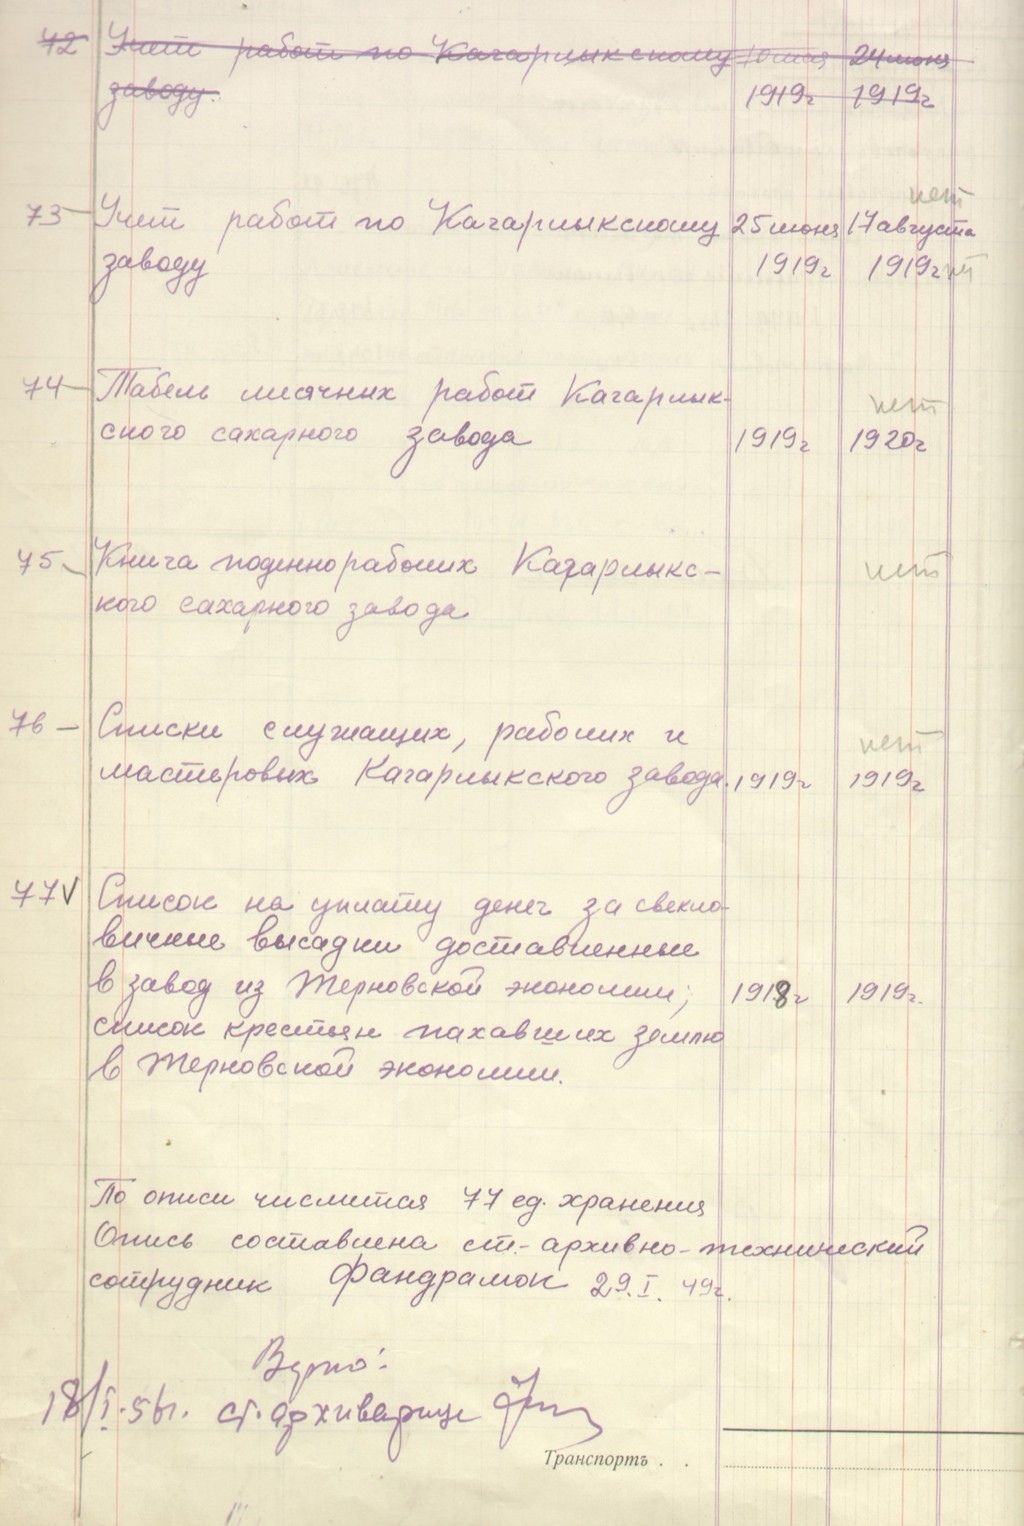 72 Учет работ по Кагарлыкскому 10 мая 24 июня
заводу. 1919г 1919г
нет
73 Учет работ по Кагарлыкскому 25 июня 17 августа
заводу 1919г 1919г
74 Табель месячных работ Кагарлык- нет
ского сахарного завода 1919г 1920г
75 Книга поденнорабочих Кагарлыкс- нет
кого сахарного завода
76 Списки служащих, рабочих и нет
мастеровых Кагарлыкского завода. 1919г 1919г
77 V Список на уплату денег за свекло-
вичные высадки доставленные
в завод из Терновской экономии; 1918г 1919г.
список крестьян пахавших землю
в Терновской экономии.
По описи числится 77 ед. хранения
Опись составлена ст.-архивно-технический
сотрудник 29.I.49г.
Верно:
18/I.56г. ст. архивариус
Транспортъ . .